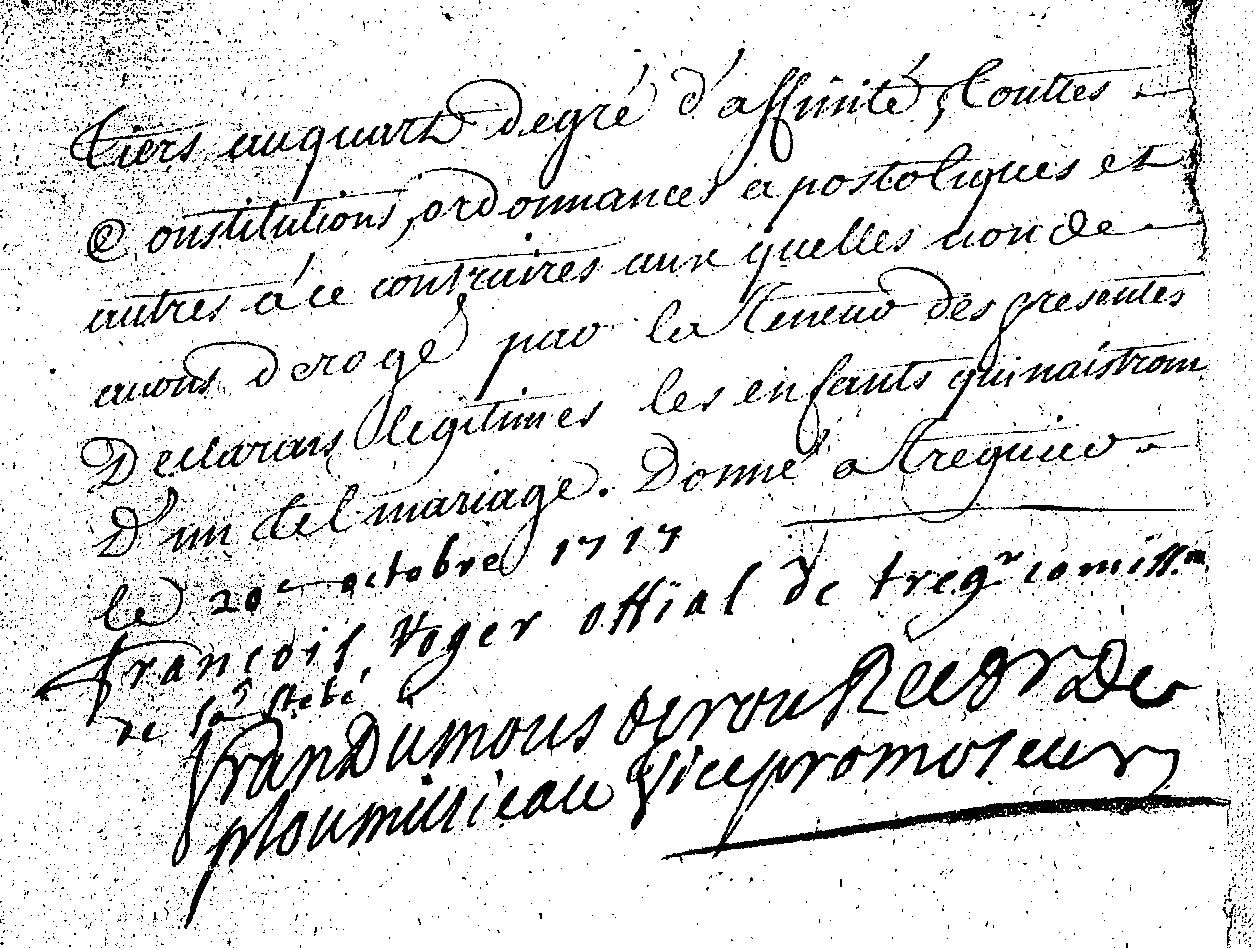 tiers au quart degré d'affinité, touttes
Constitutions, ordonnances apostoliques et
autres à ce contraires aux quelles nonde
auons derogé par la teneur des presentes
Declarans legitimes les enfants qui naistrom
D'un tel mariage. Donné a treguier
le 20e octobre 1717
françois Voger offial de tregr comissre
de sa Steté
fran Dumous derou Recdr De
ploumilieau Vice promoteur